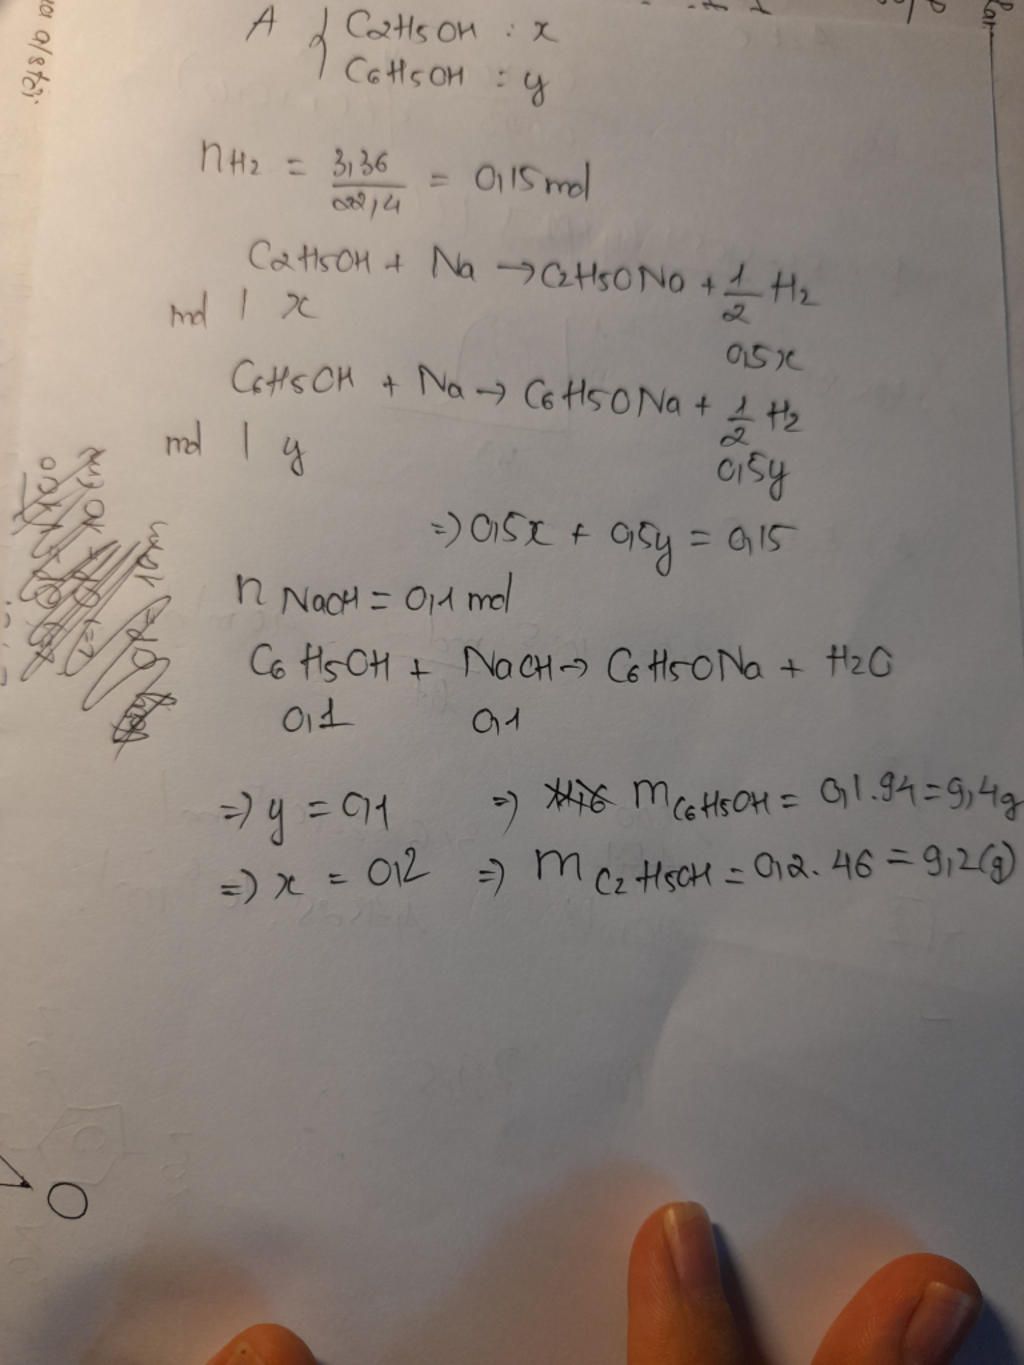 A { C2H5OH : x
C6H5OH : y
nH2 = 3,36/22,4 = 0,15 mol
C2H5OH + Na → C2H5ONa + 1/2 H2
mol | x 0,5x
C6H5OH + Na → C6H5ONa + 1/2 H2
mol | y 0,5y
=> 0,5x + 0,5y = 0,15
n NaOH = 0,1 mol
C6H5OH + NaOH → C6H5ONa + H2O
0,1 0,1
=> y = 0,1 => m C6H5OH = 0,1.94 = 9,4g
=> x = 0,2 => m C2H5OH = 0,2.46 = 9,2(g)
O